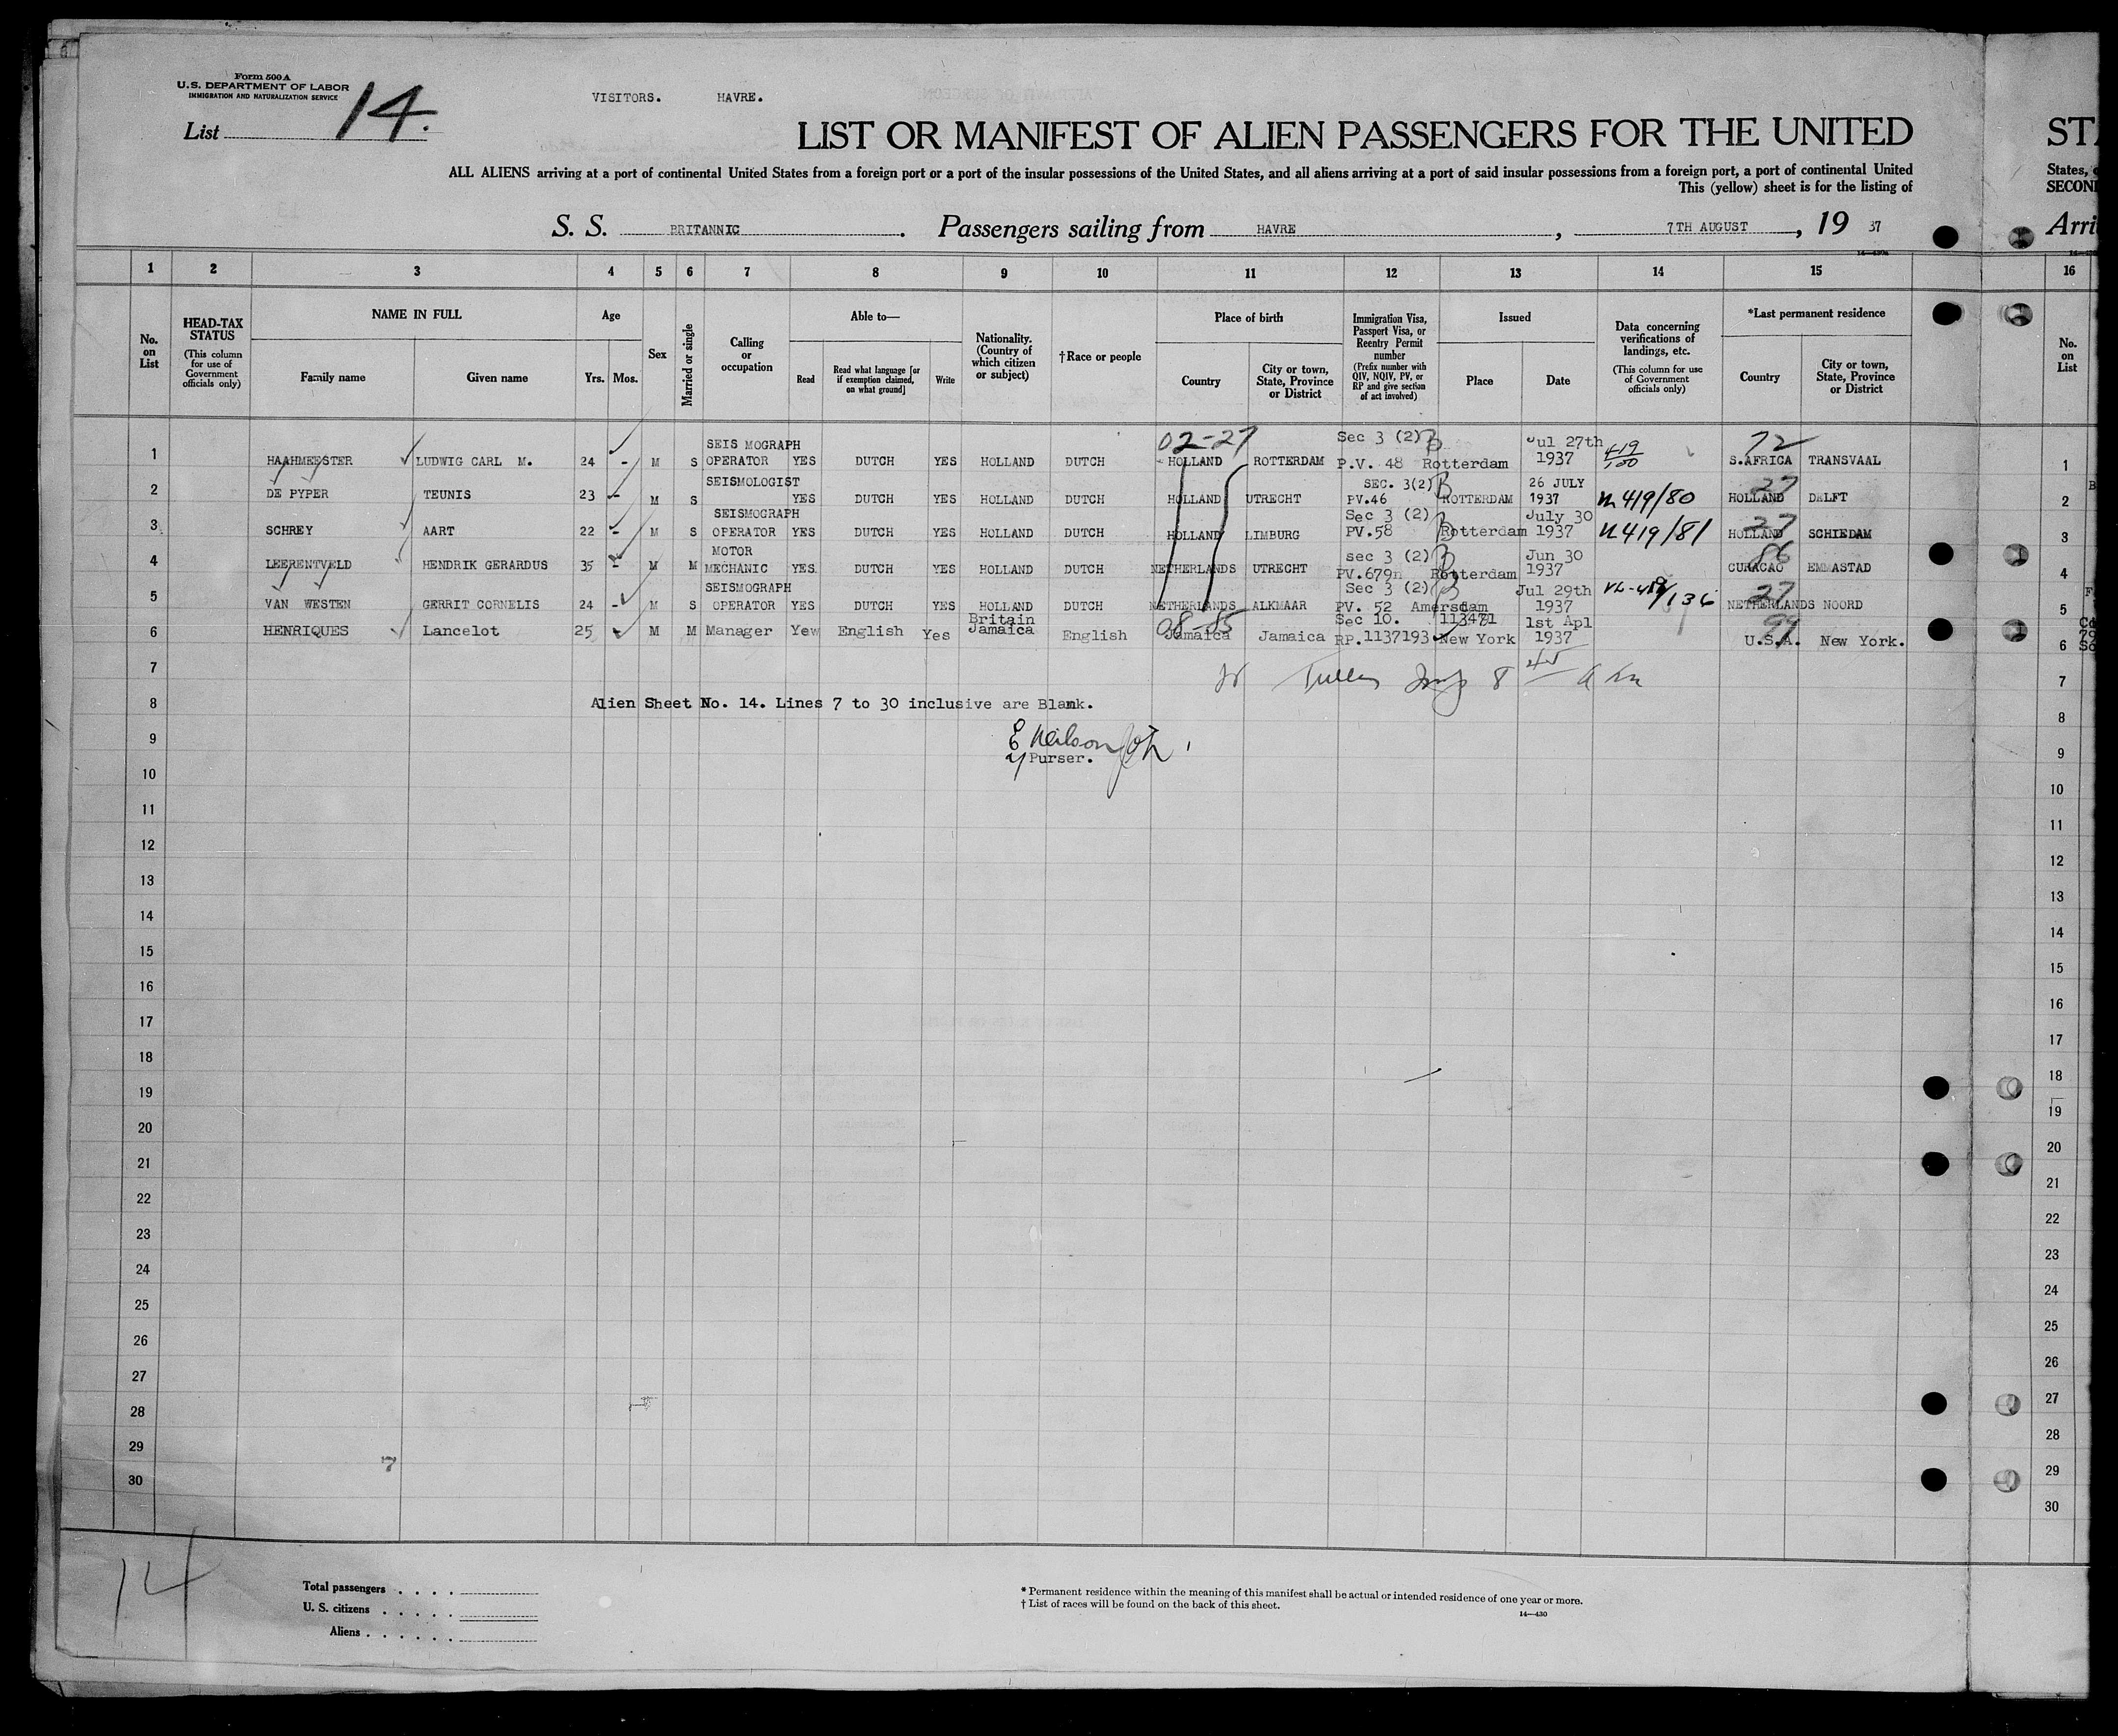 Form 500 A
U.S. DEPARTMENT OF LABOR
IMMIGRATION AND NATURALIZATION SERVICE
List 14.
VISITORS. HAVRE.
LIST OR MANIFEST OF ALIEN PASSENGERS FOR THE UNITED
ALL ALIENS arriving at a port of continental United States from a foreign port or a port of the insular possessions of the United States, and all aliens arriving at a port of said insular possessions from a foreign port, a port of continental United
This (yellow) sheet is for the listing of
States,
S. S. BRITANNIC. Passengers sailing from HAVRE, 7TH AUGUST, 19 37
1 2 3 4 5 6 7 8 9 10 11 12 13 14 15 16
No. on List
HEAD-TAX STATUS (This column for use of Government officials only)
NAME IN FULL
Family name Given name
Age
Yrs. Mos.
Sex
Married or single
Calling or occupation
Able to—
Read Read what language [or if exemption claimed, on what ground] Write
Nationality. (Country of which citizen or subject)
†Race or people
Place of birth
Country City or town, State, Province or District
Immigration Visa, Passport Visa, or Reentry Permit number (Prefix number with QIV, NQIV, PV, or RP and give section of act involved)
Issued
Place Date
Data concerning verifications of landings, etc. (This column for use of Government officials only)
*Last permanent residence
Country City or town, State, Province or District
No. on List
1 HAAHMEESTER LUDWIG CARL M. 24 - M S SEIS MOGRAPH OPERATOR YES DUTCH YES HOLLAND DUTCH 02-27 HOLLAND ROTTERDAM Sec 3 (2) P.V. 48 Rotterdam Jul 27th 1937 419/100 72 S.AFRICA TRANSVAAL 1
2 DE PYPER TEUNIS 23 - M S SEISMOLOGIST YES DUTCH YES HOLLAND DUTCH HOLLAND UTRECHT SEC. 3(2) PV.46 ROTTERDAM 26 JULY 1937 419/80 27 HOLLAND DELFT 2
3 SCHREY AART 22 - M S SEISMOGRAPH OPERATOR YES DUTCH YES HOLLAND DUTCH HOLLAND LIMBURG Sec 3 (2) PV.58 Rotterdam July 30 1937 419/81 27 HOLLAND SCHIEDAM 3
4 LEERENTVELD HENDRIK GERARDUS 35 - M M MOTOR MECHANIC YES. DUTCH YES HOLLAND DUTCH NETHERLANDS UTRECHT sec 3 (2) PV.679n Rotterdam Jun 30 1937 86 CURACAO EMMASTAD 4
5 VAN WESTEN GERRIT CORNELIS 24 - M S SEISMOGRAPH OPERATOR YES DUTCH YES HOLLAND DUTCH NETHERLANDS ALKMAAR Sec 3 (2) PV. 52 Jul 29th 1937 27 NETHERLANDS NOORD 5
6 HENRIQUES Lancelot 25 M M Manager Yew English Yes Britain Jamaica English 08-85 Jamaica Jamaica Sec 10. RP.1137193 New York 1st Apl 1937 99 U.S.A. New York. 6
7 7
Alien Sheet No. 14. Lines 7 to 30 inclusive are Blank.
8 8
E Neilson
Purser.
9 9
10 10
11 11
12 12
13 13
14 14
15 15
16 16
17 17
18 18
19 19
20 20
21 21
22 22
23 23
24 24
25 25
26 26
27 27
28 28
29 29
30 30
7
14
Total passengers . . . .
U. S. citizens . . . . .
Aliens . . . . . .
* Permanent residence within the meaning of this manifest shall be actual or intended residence of one year or more.
† List of races will be found on the back of this sheet.
14—430